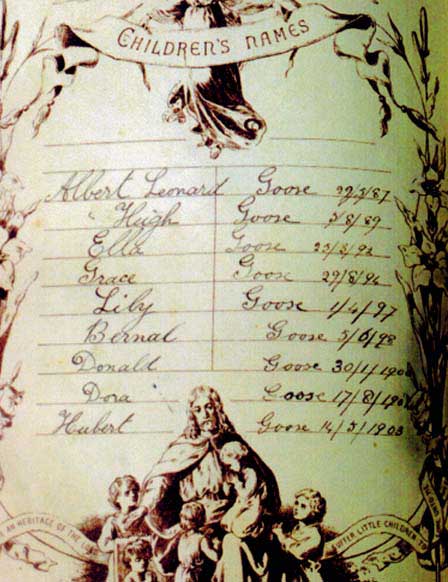 CHILDREN'S NAMES
Albert Leonard Goose 22/3/87
" Hugh Goose 5/8/89
Ella Goose 23/8/92
Grace Goose 29/8/94
Lily Goose 1/4/97
Bernal Goose 5/6/98
Donald Goose 30/1/190
Dora Goose 17/8/190
Hubert Goose 14/5/1903
AN HERITAGE OF THE
SUFFER LITTLE CHILDREN TO